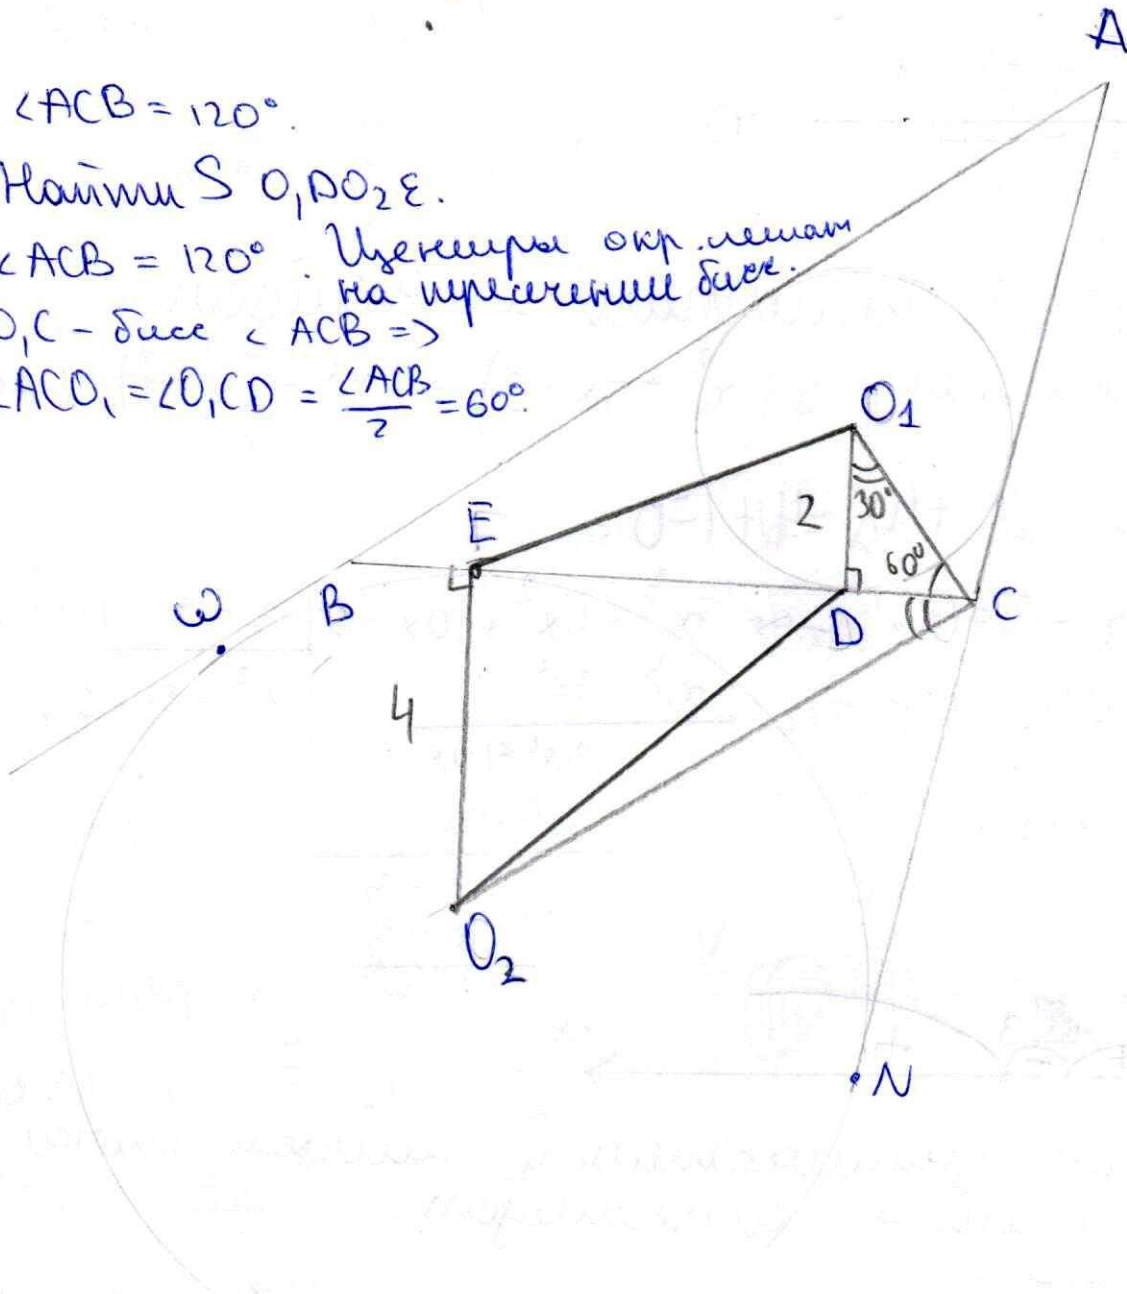 ∠ACB = 120°.
Найти S O₁DO₂E.
∠ACB = 120°. Центры окр. лежат
на пересечении бисс.
O₁C - бисс ∠ ACB =>
∠ACO₁ = ∠O₁CD = ∠ACB/2 = 60°.
A
O₁
E
2
30°
60°
ω
B
D
C
4
O₂
N